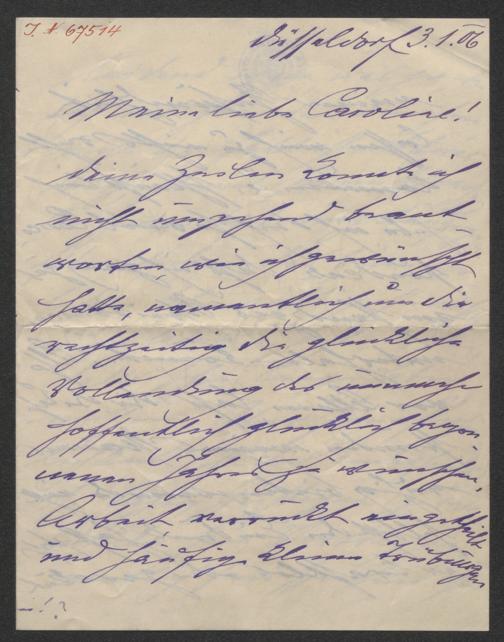 J. N 67514
Düsseldorf 3.1.06
Meine liebe Caroline!
Deine Zeilen konnte ich
nicht umgehend beant
worten, wie ich gewünscht
hatte, namentlich um Dir
rechtzeitig die glückliche
Vollendung des nunmehr
hoffentlich glücklich begon
nenen Jahres zu wünschen.
Arbeit, verrückt eingetheilt
und häufig kleine Trübungen
–!?